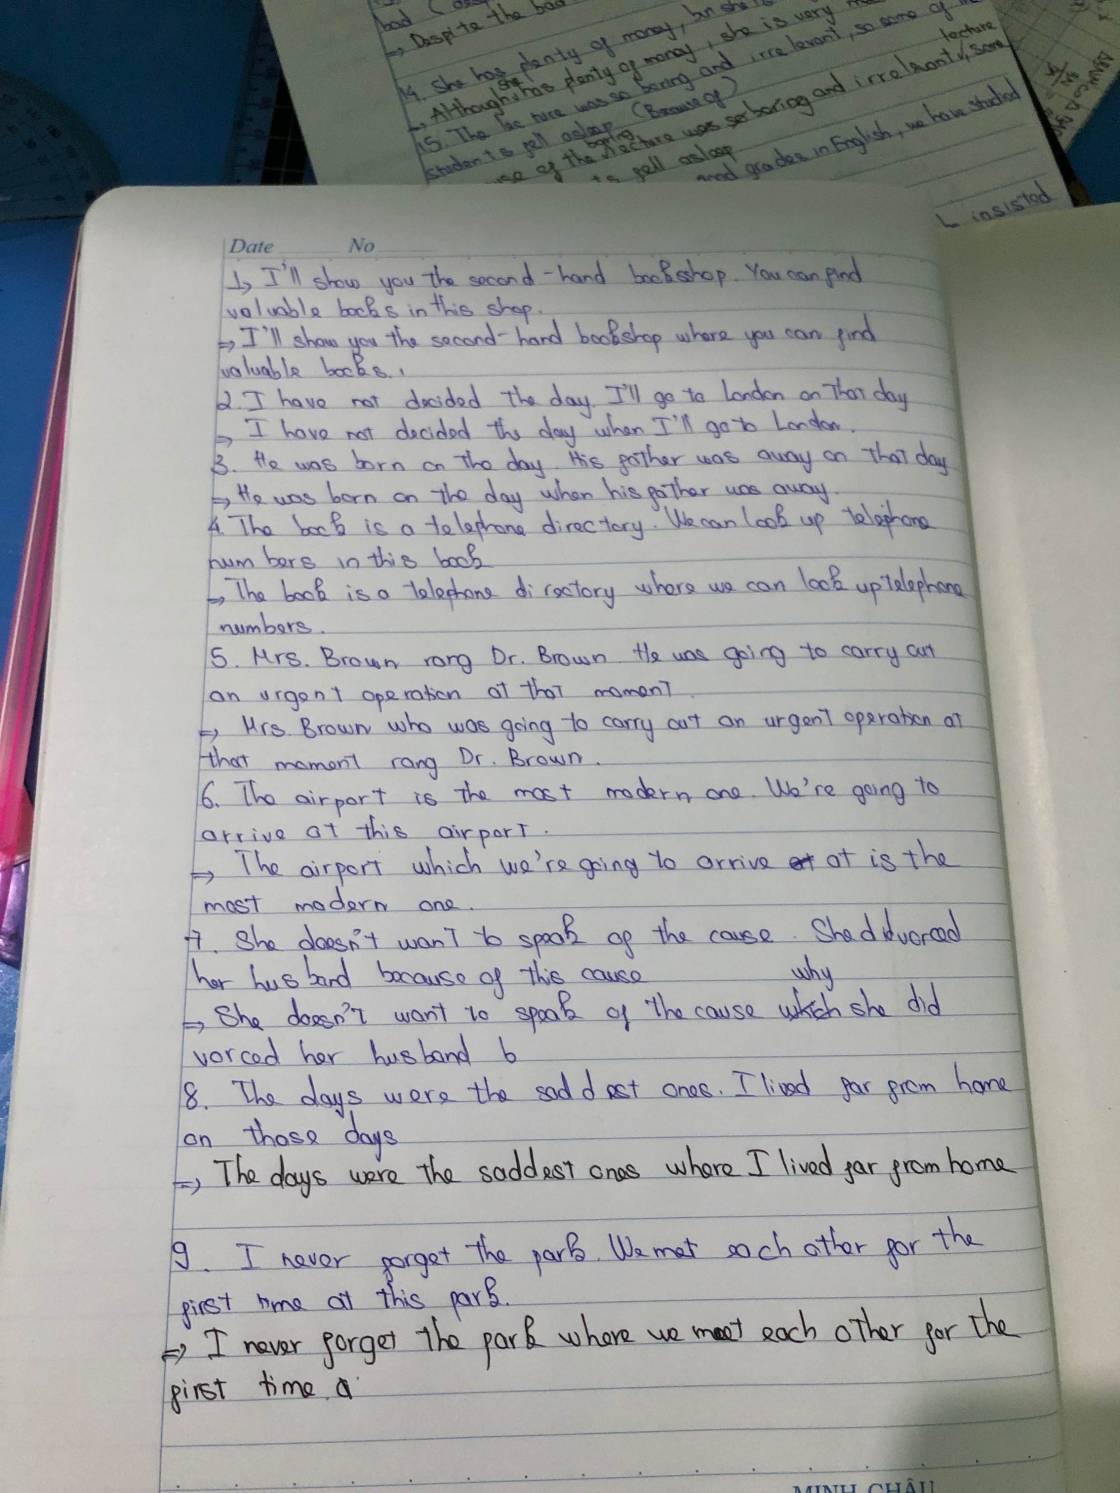 bad
=> Despite the bad
14. She has plenty of money, but she is
=> Although she has plenty of money, she is very
15. The lecture was so boring and irrelevant, so some of
students fell asleep (Because of)
lecture
of the boring lecture was so boring and irrelevant, some
fell asleep
good grades in English, we have studied
insisted
Date No
1, I'll show you the second-hand bookshop. You can find
valuable books in this shop.
=> I'll show you the second-hand bookshop where you can find
valuable books.
2. I have not decided the day I'll go to London on that day
=> I have not decided the day when I'll go to London.
3. He was born on the day. His father was away on that day
=> He was born on the day when his father was away.
4. The book is a telephone directory. We can look up telephone
numbers in this book
=> The book is a telephone directory where we can look up telephone
numbers.
5. Mrs. Brown rang Dr. Brown. He was going to carry out
an urgent operation at that moment.
=> Mrs. Brown who was going to carry out an urgent operation at
that moment rang Dr. Brown.
6. The airport is the most modern one. We're going to
arrive at this airport.
=> The airport which we're going to arrive at is the
most modern one.
7. She doesn't want to speak of the cause. She divorced
her husband because of this cause
why
=> She doesn't want to speak of the cause which she did
vorced her husband b
8. The days were the saddest ones. I lived far from home
on those days
=> The days were the saddest ones where I lived far from home
9. I never forget the park. We met each other for the
first time at this park.
=> I never forget the park where we meet each other for the
first time. a
MINH CHÂU